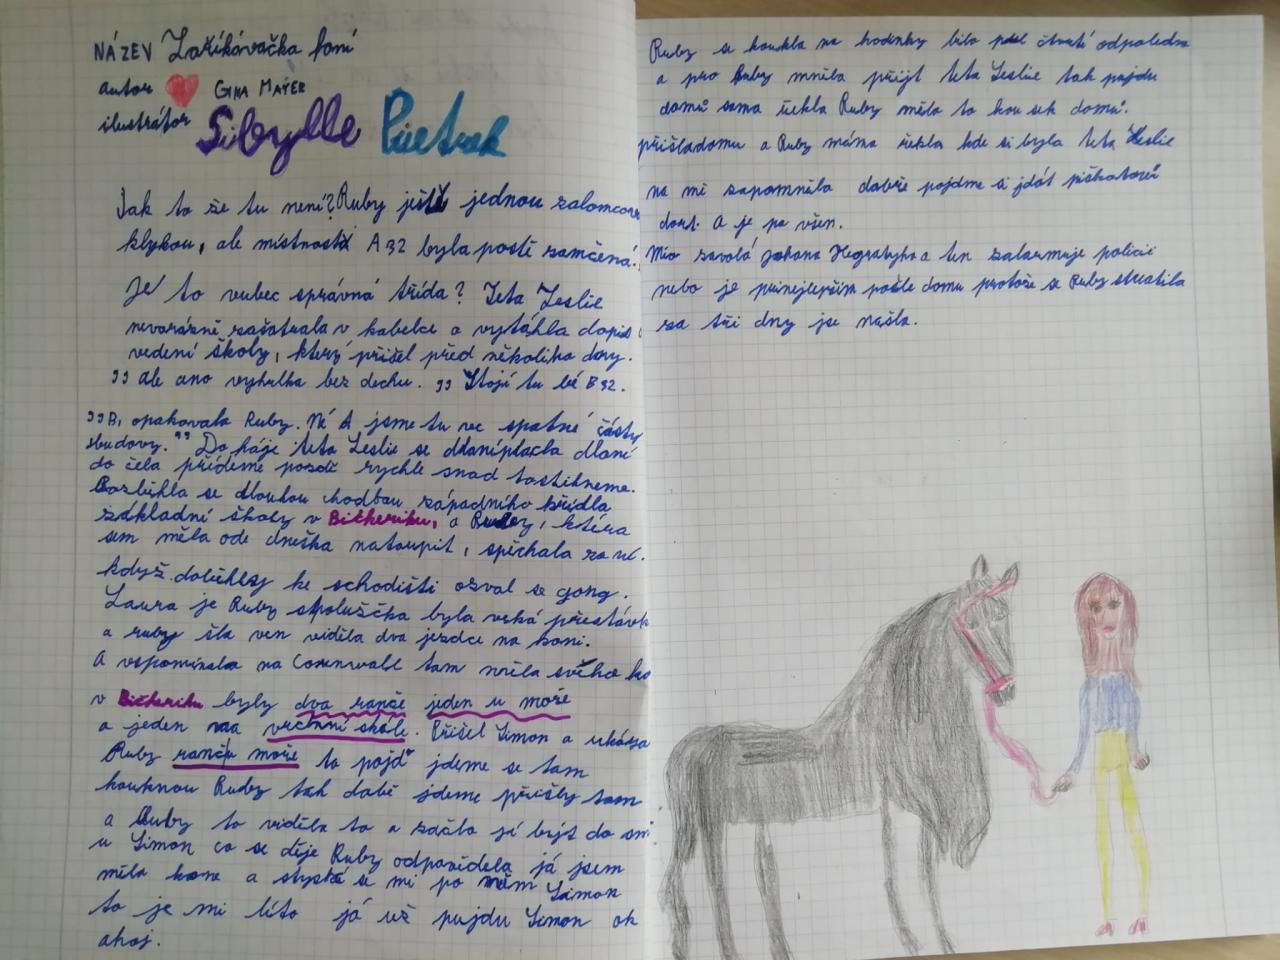 NÁZEV Zaříkávačka koní
autor Gina Mayer
ilustrátor Sibylle Pietrek
Jak to že tu není? Ruby ještě jednou zalomcova
klykou, ale místnost A 92 byla postě zamčená!
Jé to vubec správná třída? Teta Leslie
nevorázně zašátrala v kabelce a vytáhla dopis
vedení školy, který přišel před několika dny.
„ ale ano vyhulka bez dechu. „ Stojí tu bé B 92.
„B, opakovala Ruby. Né A jsme tu ve spatné částy
sbudovy." Do háje teta Leslie se dlaní placla dlaní
do čela přídeme pozdě rychle snad to stihneme.
Rozběhla se dlouhou chodbou západního křídla
základní školy v a Ruby, ktéra
sem měla ode dneška natoupit, spěchala za ní.
když doběhly ke schodišti ozval se gong.
Laura je Ruby spolužčka byla veká přestávk
a ruby šla ven viděla dva jezdce na koni.
A vspomínala na Cornwall tam měla svého ko
v byly dva ranče jeden u moře
a jeden na škole. Přišel Simon a ukáza
Ruby ranč u moře to pojď jdeme se tam
kouknou Ruby tak době jdeme přišly tam
a Ruby to viděla to a začlo jí býjt do
u Simon co se děje Ruby odpovídela já jsem
měla kone a stýská se mi po něm Simon
to je mi líto já už pujdu Simon ok
ahoj.
Ruby se koukla na hodinky bilo půl čtvrtí odpoledna
a pro Ruby měla přijt teta Leslie tak pujdu
domů sama řekla Ruby měla to kou sek domů.
přišladomu a Ruby máma řekla kde si byla teta Leslie
na mi zapomněla dobře pojdme si jdát
dort. A je po všen.
Mio zavolá a ten zalarmuje policii
nebo je přinejlepším pošle domu protože se Ruby stratila
za tři dny jse našla.